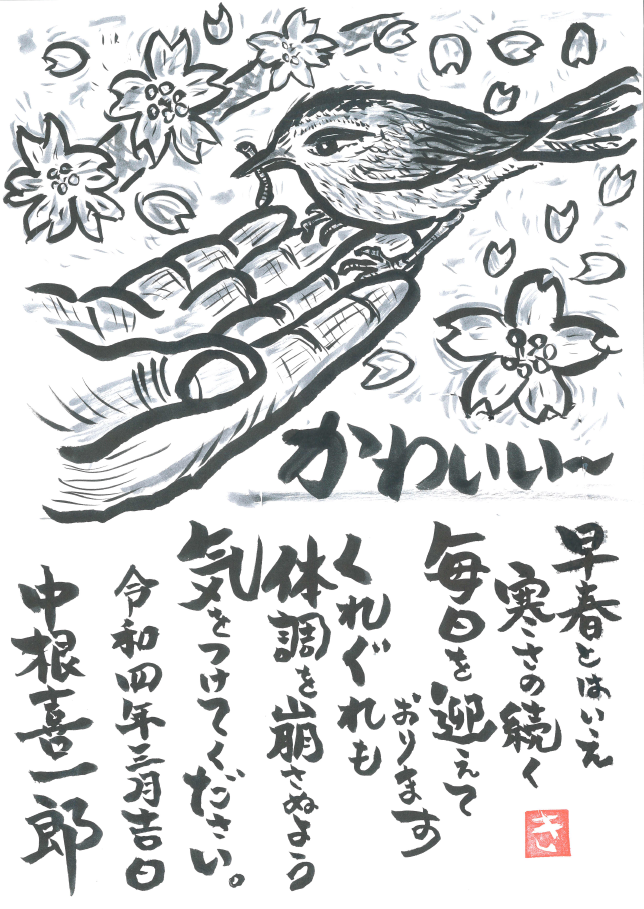 かわいい〜
早春とはいえ
寒さの続く
毎日を迎えて
おります
くれぐれも
体調を崩さぬよう
気をつけてください。
令和四年三月吉日
中根喜一郎
きい